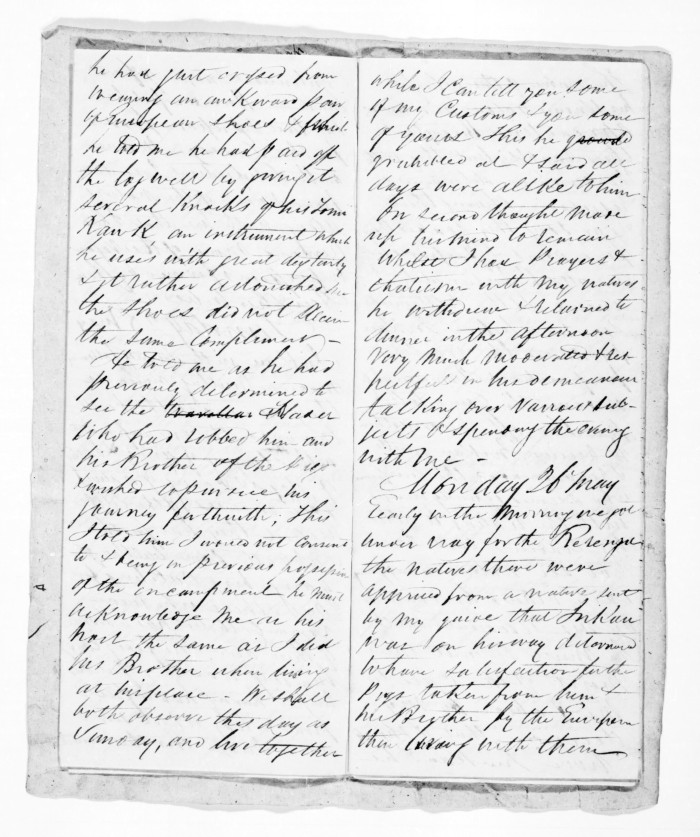 he had just crossed from
wearing an awkward pair
of European shoes &
he told me he had paid off
the log well by giving it
several Knocks of his Tom
Hawk an instrument which
he uses with great dexterity
& yet rather astonished
the shoes did not
the same Complement –
He told me as he had
previously determined to
see the Travellar
Who had robbed him and
his Brother of the Pigs
& wished to pursue his
journey forthwith; This
I told him I would not Consent
to & being in previous possession
of the encampment he must
acknowledge Me as his
host the same as I did
his Brother when living
at his place – We shall
both observe this day as
Sunday, and live together
while I Can tell you some
of my Customs & you some
of yours This he
grumbled at & said all
days were alike to him
On second thought made
up his mind to remain
Whilst I has Prayers &
with my natives
he withdrew & returned to
dinner in the afternoon
Very Much Moderated & res-
pectful in his demeanour
talking over Various sub-
jects & spending the evening
with Me –
Monday 26 May
Early in the Morning we got
under way for the
the natives there were
apprised from a native sent
by my guide that
was on his way determined
to have satisfaction for the
Pigs taken from him &
his Brother by the European
then living with them